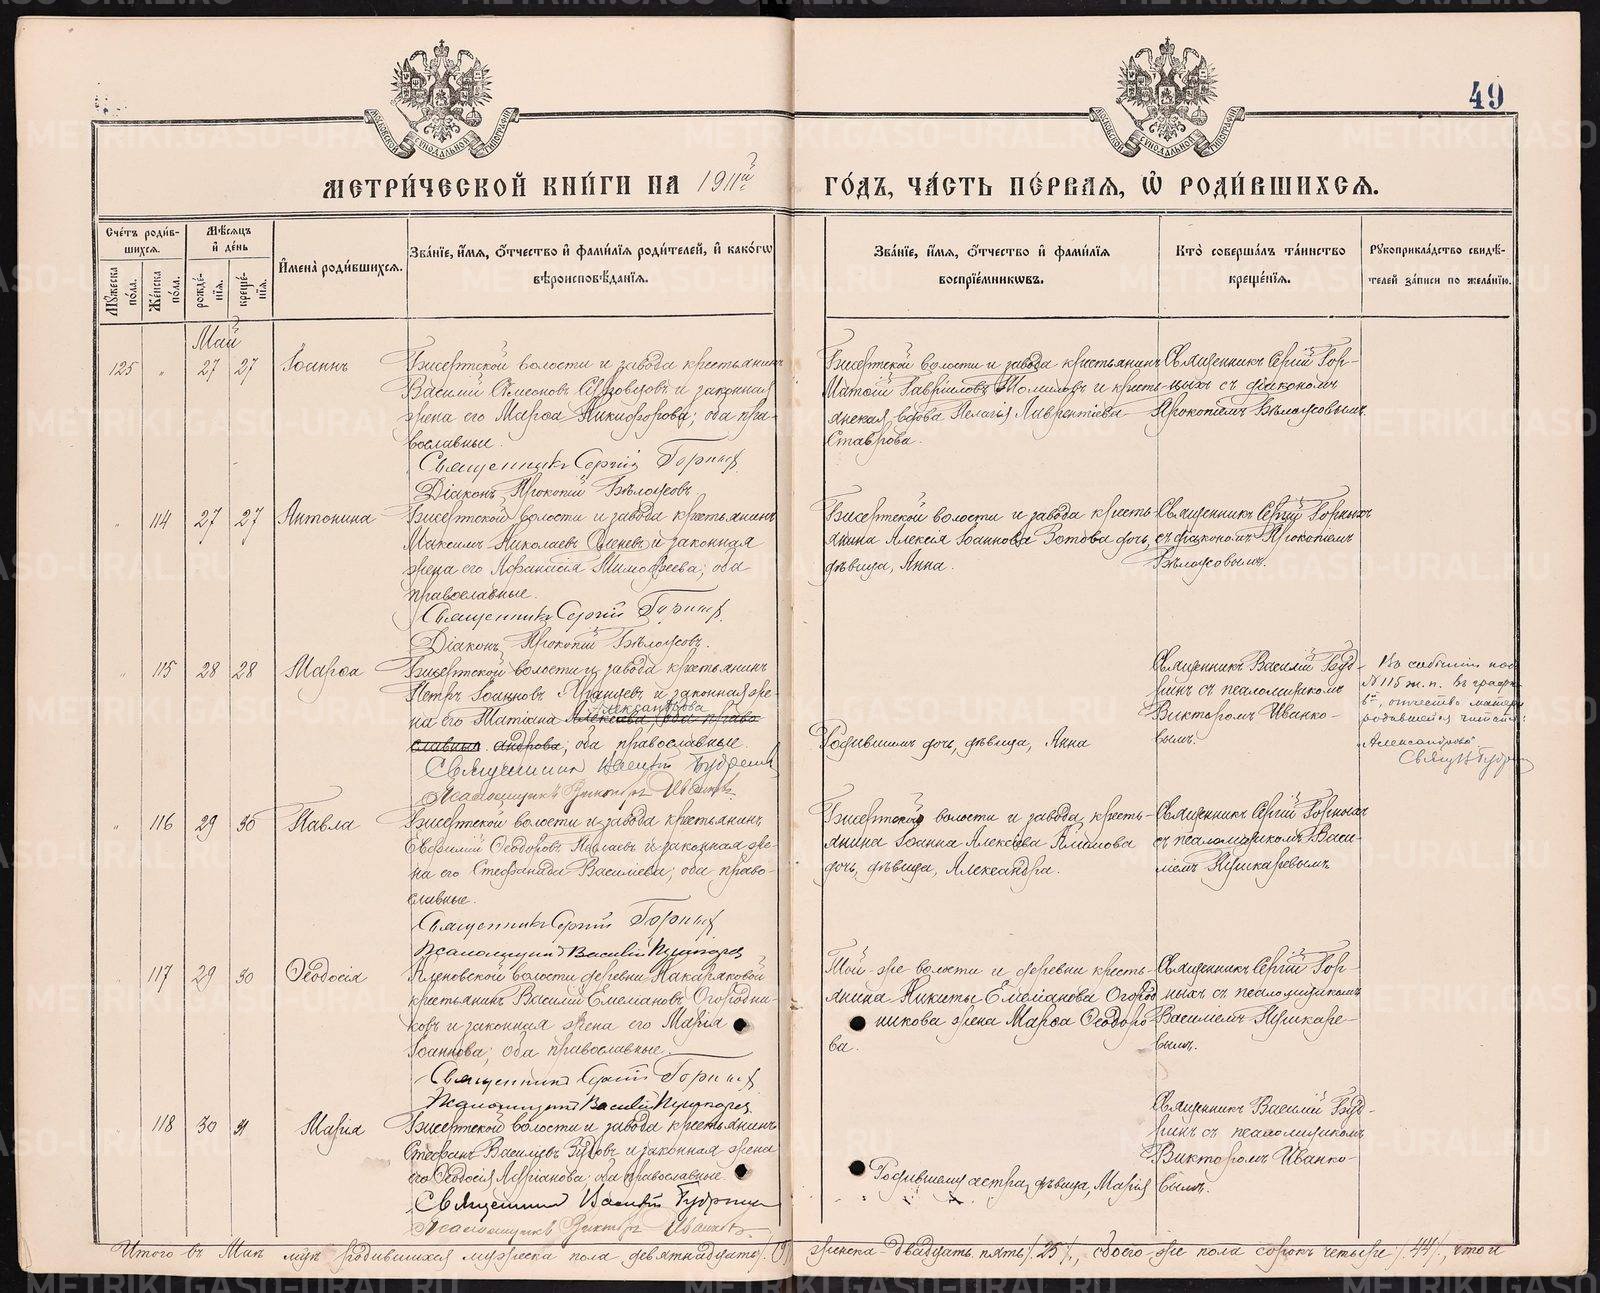 49
МЕТРИ́ЧЕСКОЙ КНИ́ГИ НА 1911й ГО́ДЪ, ЧА́СТЬ ПЕ́РВАЯ, Ѽ РОДИ́ВШИХСЯ.
Сче́тъ роди́вшихся.
Мꙋжеска по́ла.
Же́нска по́ла.
Мѣ́сяцъ и де́нь
рожде́нїя.
креще́нїя.
И҆мена̀ роди́вшихся.
Зва́нїе, и҆́мя, ѻ҆́тчество и҆ фами́лїя роди́телей, и҆ како́гѡ
вѣроисповѣ́данїя.
Зва́нїе, и҆́мя, ѻ҆́тчество и҆ фами́лїя
воспрїе́мникѡвъ.
Кто̀ соверша́лъ та́инство
креще́нїя.
Рꙋкоприкла́дство свидѣ́-
телей за́писи по жела́нїю.
Май
125 " 27 27 Іоаннъ
Бисертской волости и завода крестьянинъ
Василій Симеоновъ и законная
жена его Марѳа Никифорова; оба пра-
вославные.
Священникъ Сергій Горныхъ
Діаконъ Прокопій Бѣлоусовъ
Бисертской волости и завода крестьянинъ
Матѳій Гавріиловъ Томиловъ и кресть-
янская вдова Пелагія Лаврентіева
Ставрова.
Священникъ Сергій Гор-
ныхъ съ діакономъ
Прокопіемъ Бѣлоусовымъ.
" 114 27 27 Антонина
Бисертской волости и завода крестьянинъ
Максимъ Николаевъ и законная
жена его Аѳанасія Тимоѳеева; оба
православные.
Священникъ Сергій Горныхъ
Діаконъ Прокопій Бѣлоусовъ.
Бисертской волости и завода кресть-
янина Алексія Іоаннова Зотова дочь,
дѣвица, Анна.
Священникъ Сергій Горныхъ
съ діакономъ Прокопіемъ
Бѣлоусовымъ.
" 115 28 28 Марѳа
Бисертской волости и завода крестьянинъ
Петръ Іоанновъ и законная же-
на его Татіана Алексіева, оба право
Александрова
славные. андрова; оба православные.
Священникъ Василій Будринъ
Псаломщикъ Викторъ Иванковъ.
Родившимъ дочь, дѣвица, Анна
Священникъ Василій Буд-
ринъ съ псаломщикомъ
Викторомъ Иванко-
вымъ.
Въ событіи под
№ 115 ж. п. въ графѣ
отчество матери
родившейся читать:
„Александрова"
Свящ В Будрин
" 116 29 30 Павла
Бисертской волости и завода крестьянинъ
Евѳимій Ѳеодоровъ и законная же-
на его Стефанида Василіева; оба право-
славные.
Священникъ Сергій Горныхъ
Псаломщикъ Василій Пушкаревъ
Бисертской волости и завода кресть-
янина Іоанна Алексіева
дочь, дѣвица, Александра.
Священникъ Сергій Горныхъ
съ псаломщикомъ Васи-
ліемъ Пушкаревымъ
117 29 30 Ѳеодосія
Кленовской волости деревни Накаряковой
крестьянинъ Василій Емеліановъ Огородни-
ковъ и законная жена его Марія
Іоаннова; оба православные.
Священникъ Сергій Горныхъ
Псаломщикъ Василій Пушкаревъ
Той-же волости и деревни кресть-
янина Никиты Емеліанова Огород
никова жена Марѳа Ѳеодоро-
ва.
Священникъ Сергій Гор-
ныхъ съ псаломщикомъ
Василіемъ Пушкаре-
вымъ.
118 30 31 Марія
Бисертской волости и завода крестьянинъ
Стефанъ Василіевъ и законная жена
его Ѳеодосія Адріанова; оба православные
Священникъ Василій Будринъ
Псаломщикъ Викторъ Иванковъ.
Родившему сестра, дѣвица, Марія
Священникъ Василій Буд-
ринъ съ псаломщикомъ
Викторомъ Иванко-
вымъ.
Итого въ Маѣ родившихся мужеска пола девятнадцать женска двадцать пять /. 25 /., обоего же пола сорокъ четыре /. 44 /., что и